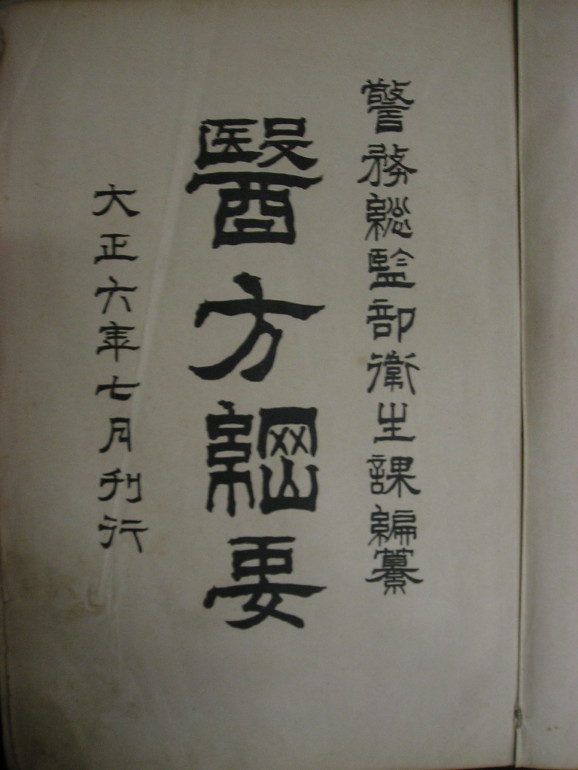 警務総監部衛生課編纂
醫方綱要
大正六年七月刊行